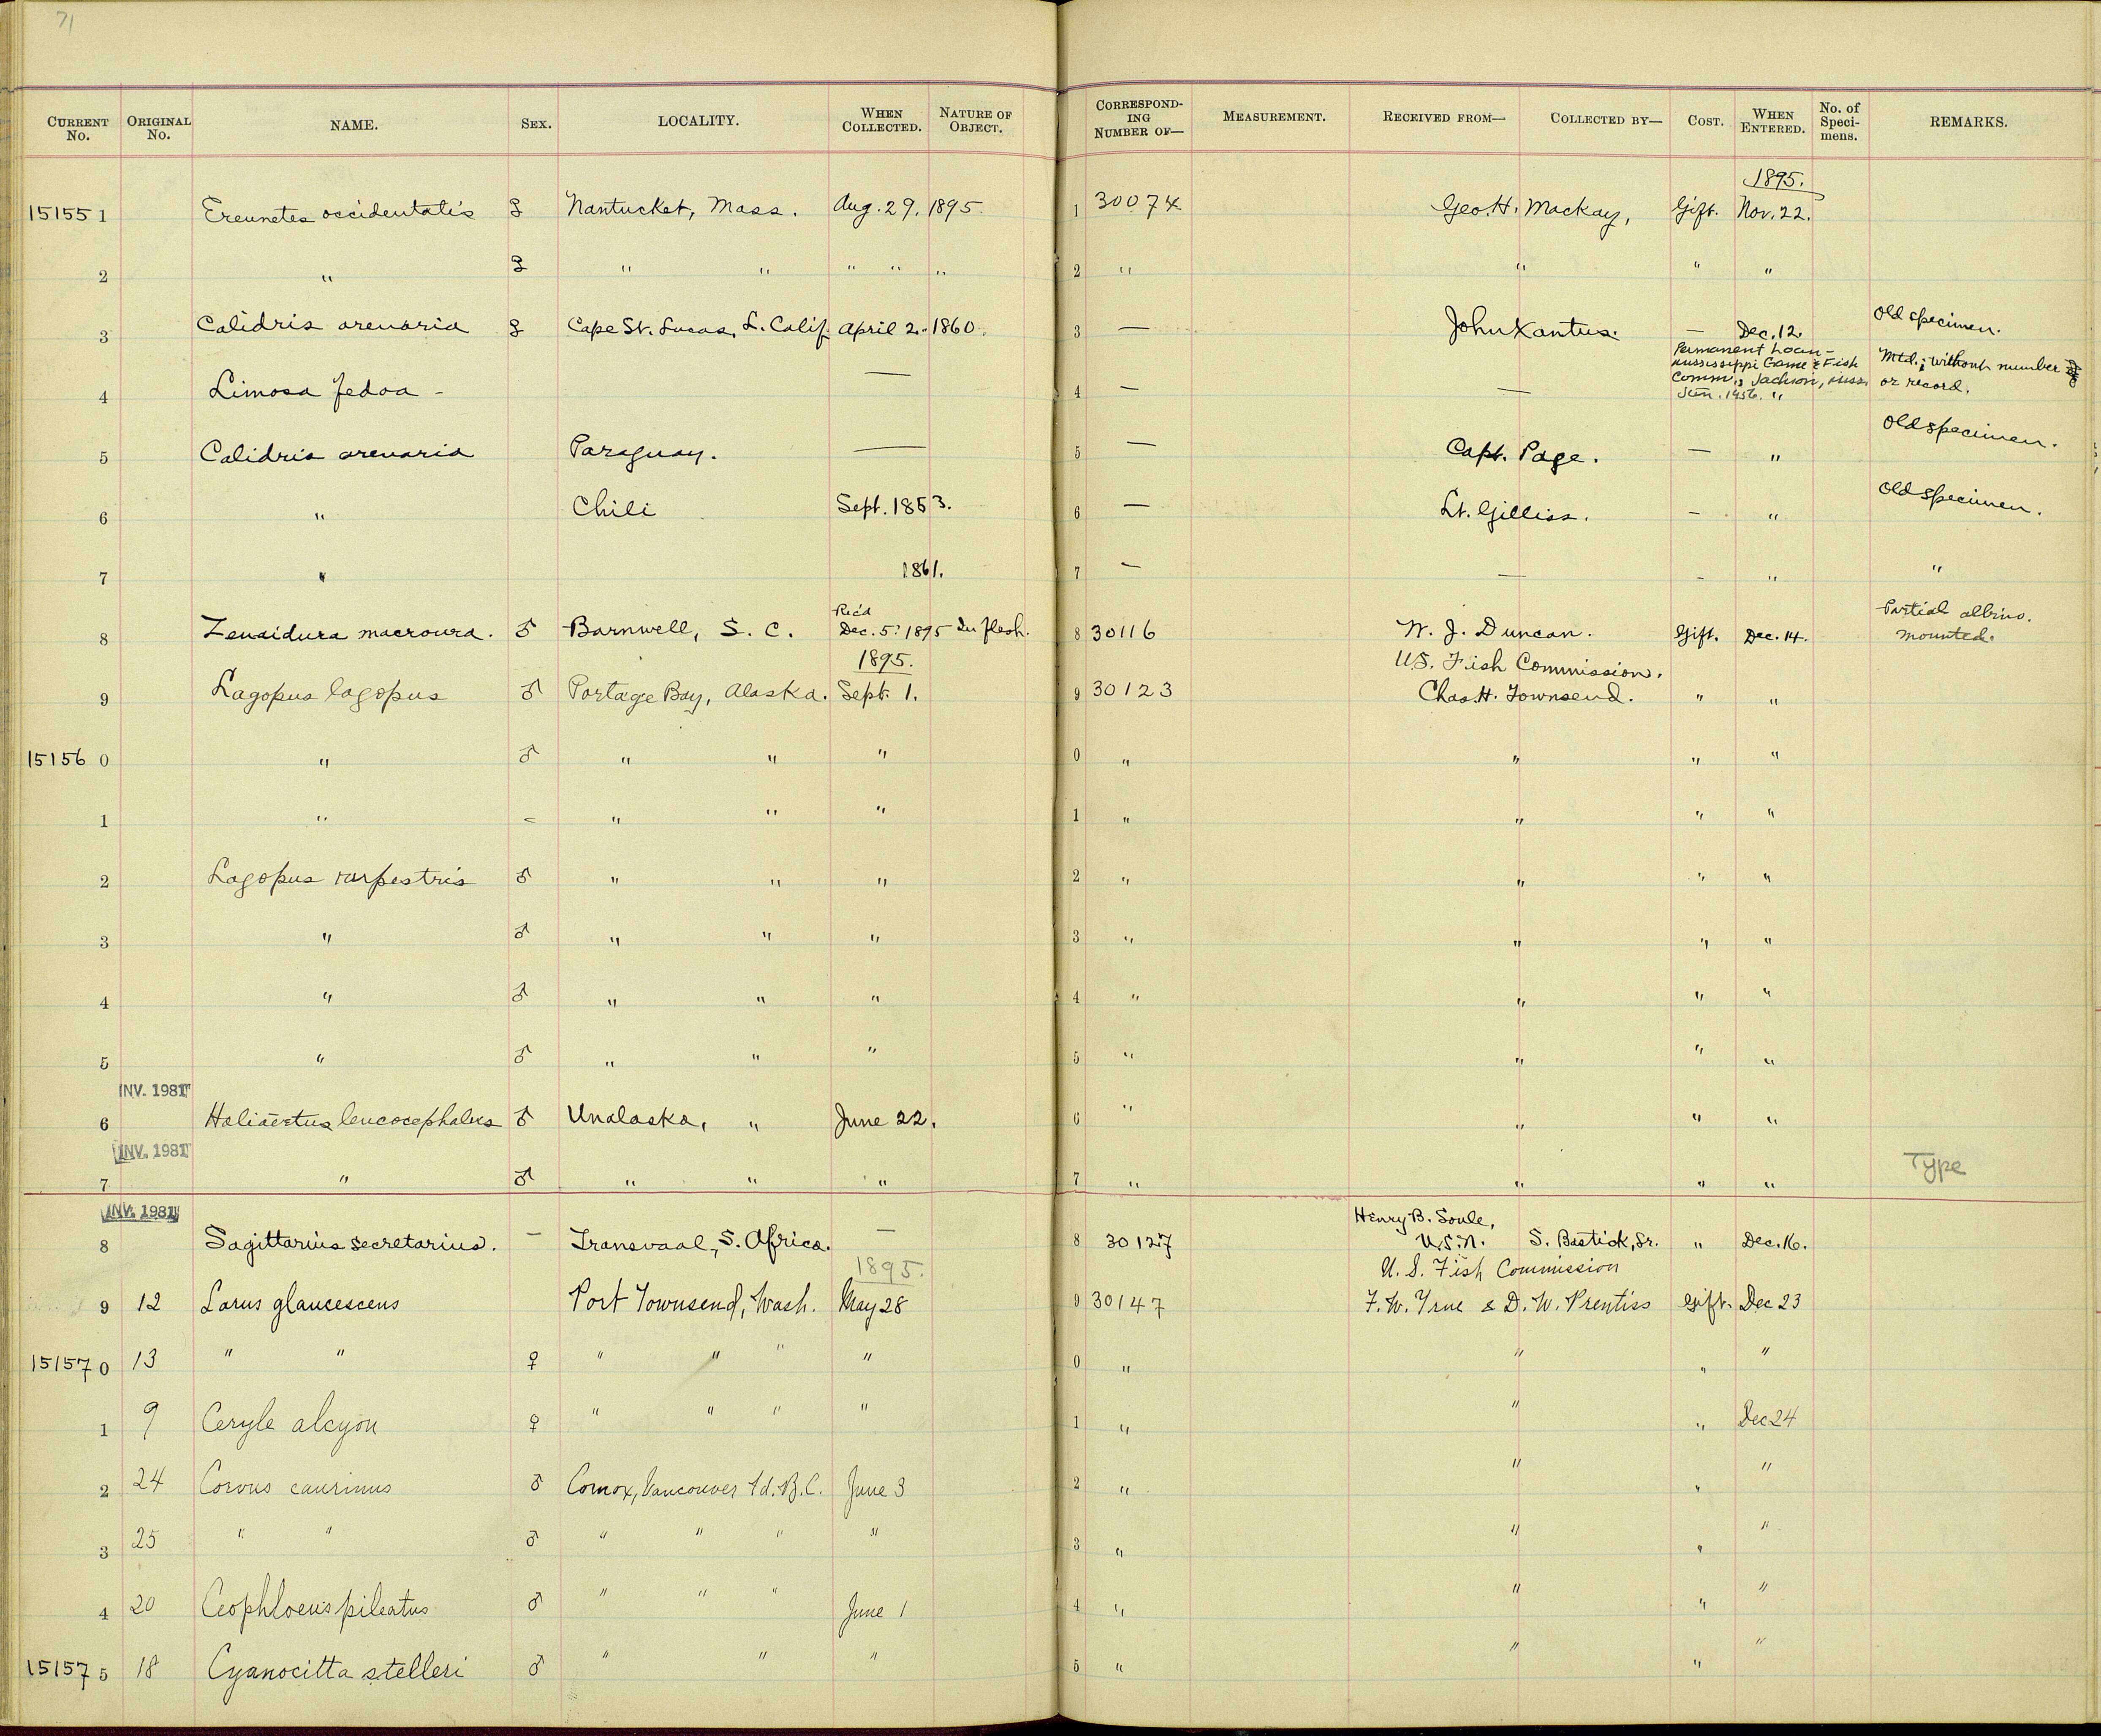 71
CURRENT No. ORIGINAL No. NAME. SEX. LOCALITY. WHEN COLLECTED. NATURE OF OBJECT. CORRESPONDING NUMBER OF— MEASUREMENT. RECEIVED FROM— COLLECTED BY— COST. WHEN ENTERED. No. of Specimens. REMARKS.
1895.
15155 1 Ereunetes occidentalis ♀ Nantucket, Mass. Aug. 29. 1895. 1 30074 Geo. H. Mackay, Gift. Nov. 22.
2 " ♀ " " " " " 2 " " " "
3 Calidris arenaria ♀ Cape St. Lucas, L. Calif. April 2.- 1860. 3 — John Xantus. — Dec. 12. Old specimen.
4 Limosa fedoa - — 4 — — Permanent Loan - Mississippi Game & Fish Comm., Jackson, Miss. Jan. 1956. " Mtd.; without number or record.
5 Calidris arenaria Paraguay. — 5 — Capt. Page. — " Old specimen.
6 " Chili Sept. 1853. 6 — Lt. Gilliss. — " Old specimen.
7 " 1861. 7 — — - " "
8 Zenaidura macroura. ♂ Barnwell, S. C. Rec'd Dec. 5. 1895 In flesh. 8 30116 W. J. Duncan. Gift. Dec. 14. Partial albino. mounted.
1895. U.S. Fish Commission.
9 Lagopus lagopus ♂ Portage Bay, Alaska. Sept. 1. 9 30123 Chas. H. Townsend. " "
15156 0 " ♂ " " " 0 " " " "
1 " - " " " 1 " " " "
2 Lagopus rupestris ♂ " " " 2 " " " "
3 " ♂ " " " 3 " " " "
4 " ♂ " " " 4 " " " "
5 " ♂ " " " 5 " " " "
INV. 1981
6 Haliæetus leucocephalus ♂ Unalaska, " June 22. 6 " " " "
INV. 1981
7 " ♂ " " " 7 " " " " Type
INV. 1981
8 Sagittarius secretarius. — Transvaal, S. Africa. — 8 30127 Henry B. Soule, U.S.N. S. Bastick, Sr. " Dec. 16.
1895. U. S. Fish Commission
9 12 Larus glaucescens Port Townsend, Wash. May 28 9 30147 F. W. True & D. W. Prentiss Gift. Dec 23
15157 0 13 " " ♀ " " " " 0 " " " "
1 9 Ceryle alcyon ♀ " " " " 1 " " " Dec 24
2 24 Corvus caurinus ♂ Comox, Vancouver Id. B.C. June 3 2 " " " "
3 25 " " ♂ " " " " 3 " " " "
4 20 Ceophloeus pileatus ♂ " " " June 1 4 " " " "
15157 5 18 Cyanocitta stelleri ♂ " " " 5 " " " "